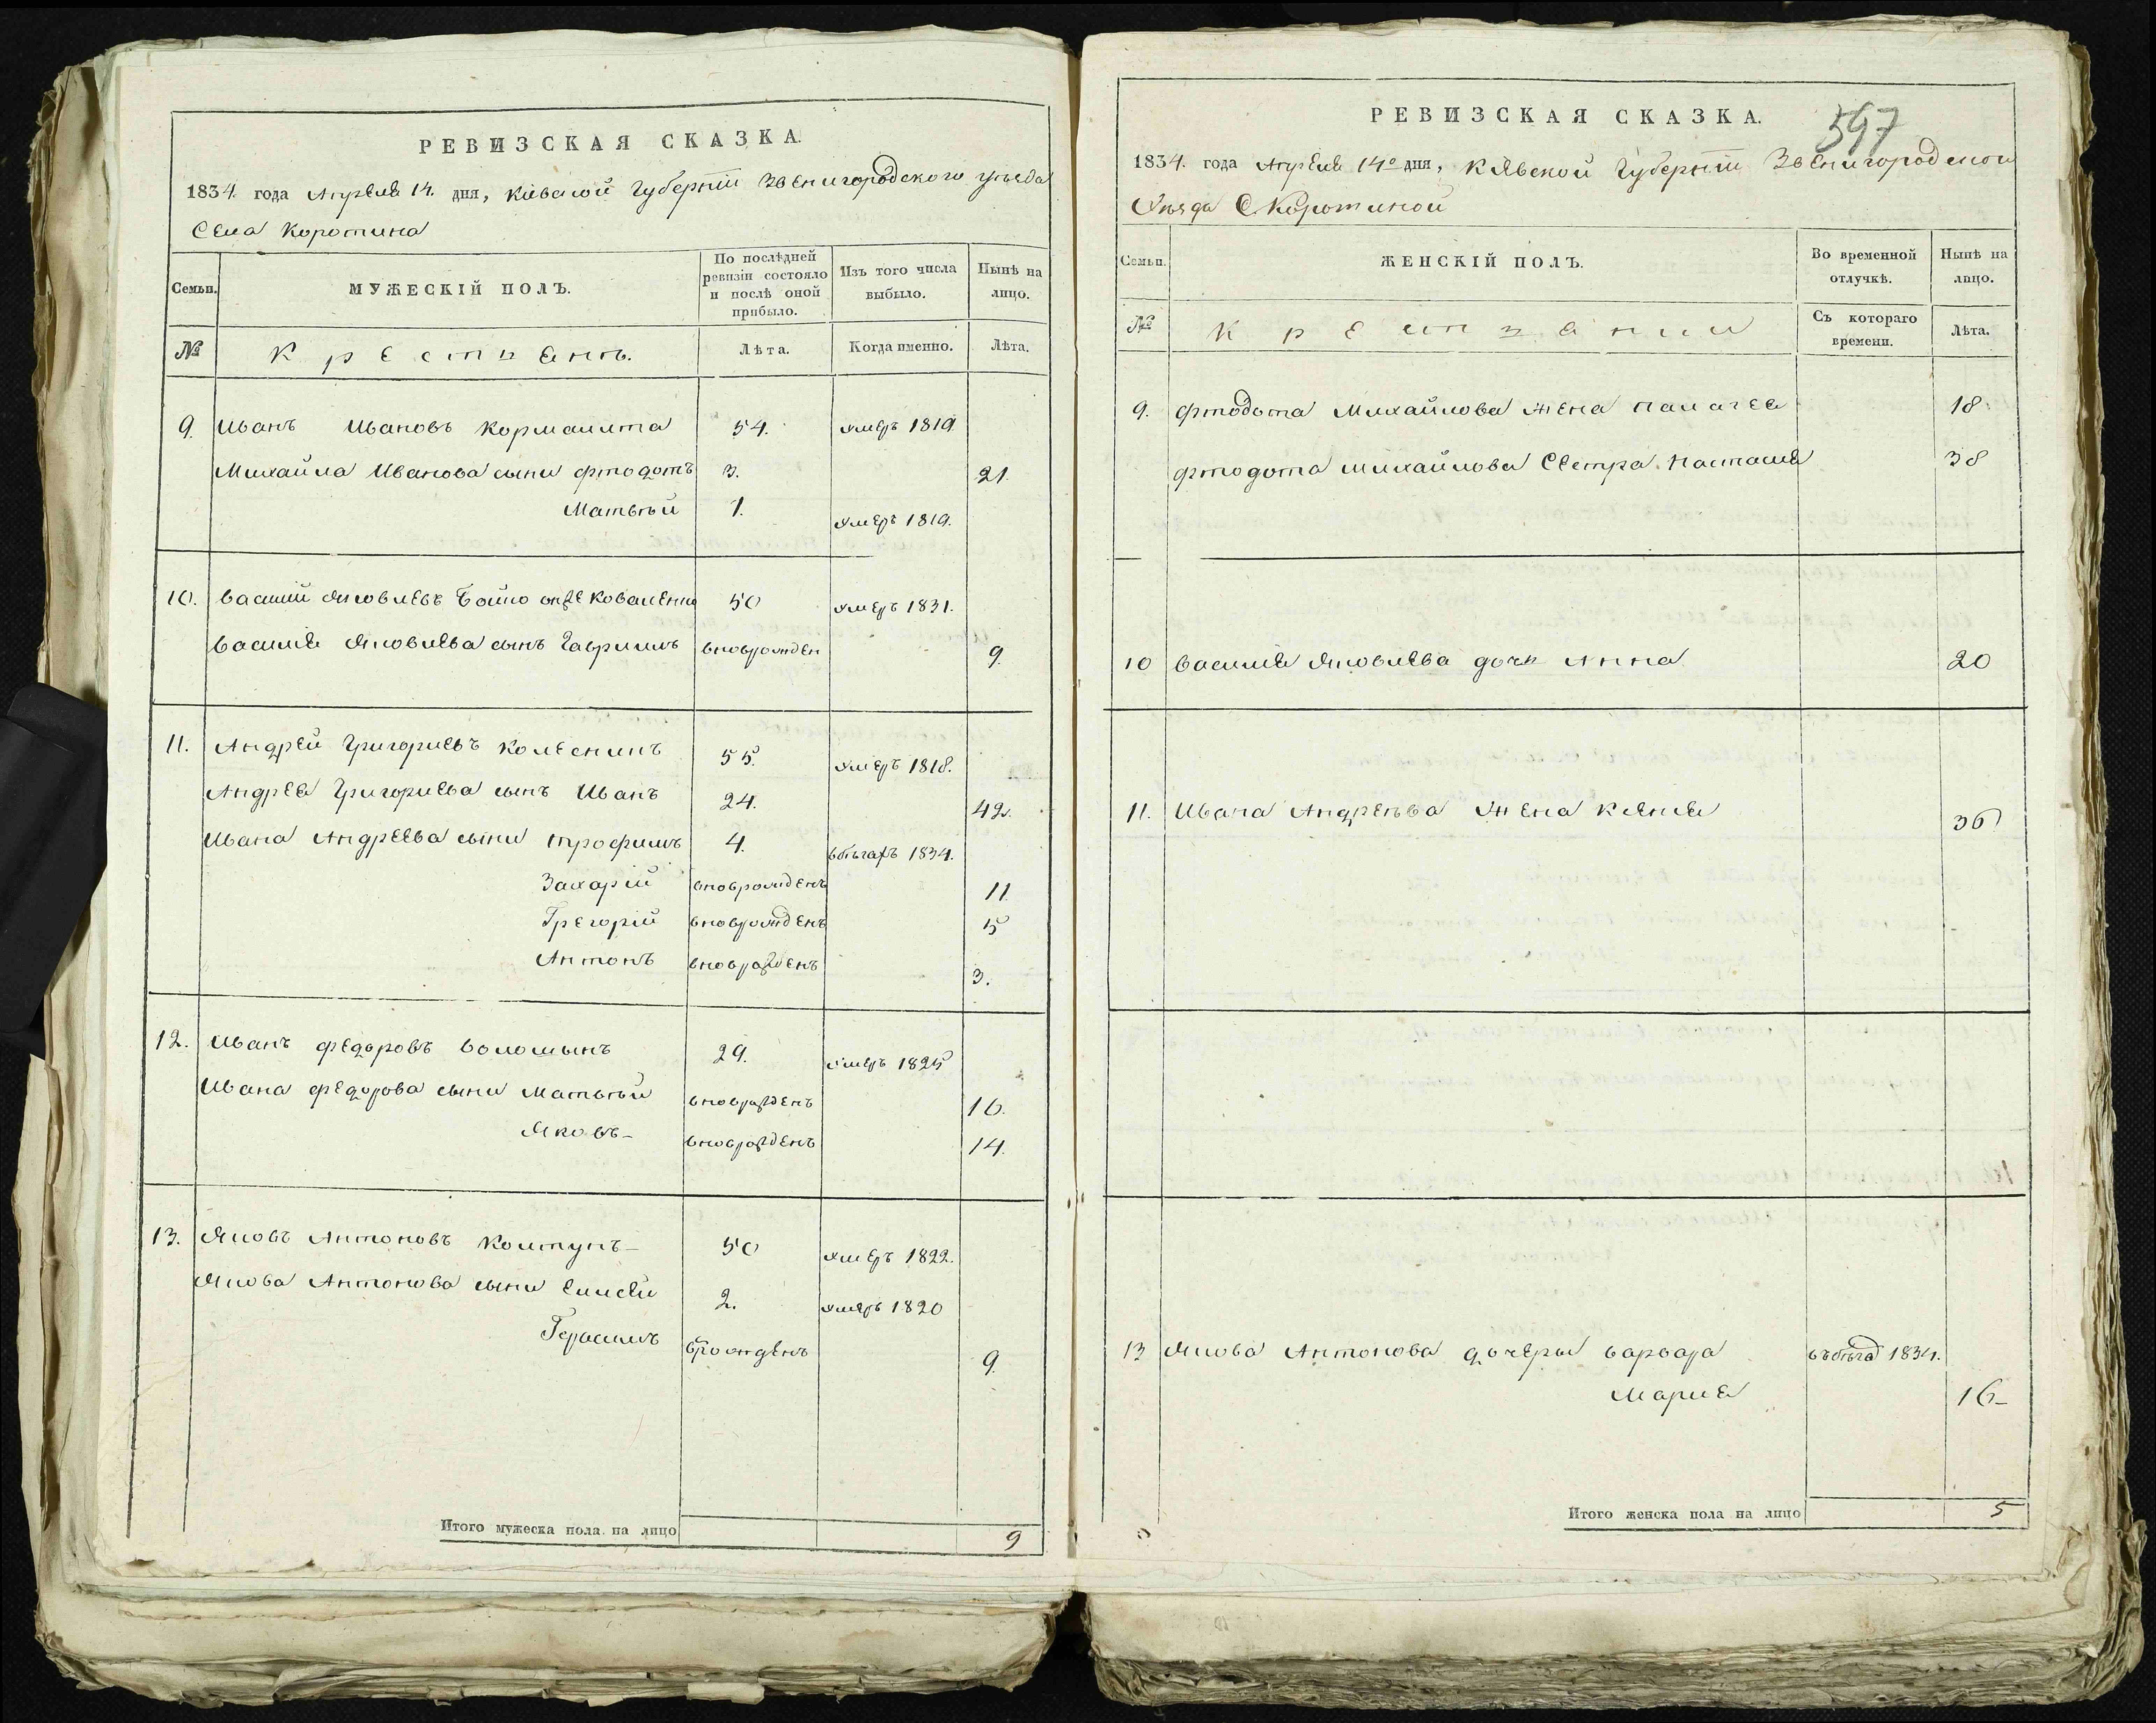 РЕВИЗСКАЯ СКАЗКА.
1834. года Апреля 14. дня, Киевской Губернїи Звенигородского уѣзда
Села Коротина
Семьи.
МУЖЕСКІЙ ПОЛЪ.
По послѣдней ревизіи состояло и послѣ оной прибыло.
Изъ того числа выбыло.
Нынѣ на лицо.
№
Крестьянъ.
Лѣта.
Когда именно.
Лѣта.
9. Иванъ Ивановъ 54. умеръ 1819.
Михайла Иванова сыни Фтодотъ 3. 21.
Матвѣй 1. умеръ 1819.
10. Василий Яковлевъ Бойко онже Коваленко 50 умеръ 1831.
Василия Яковлева сынъ Гаврилъ вноврожден 9.
11. Андрей Григориевъ Колесникъ 55. умеръ 1818.
Андрея Григориева сынъ Иванъ 24. 42.
Ивана Андреева сыни Трофимъ 4. вбѣгахъ 1834.
Захарій вноврожденъ 11.
Грегорій вноврожденъ 5
Антонъ вноврожденъ 3.
12. Иванъ Федоровъ Волошынъ 29. умеръ 1825
Ивана Федорова сыни Матвѣй вноврожденъ 16.
Яковъ- вноврожденъ 14.
13. Яковъ Антоновъ Ковтунъ- 50 умеръ 1822.
Якова Антонова сыни Елисей 2. умеръ 1820
Герасимъ 9.
Итого мужеска пола на лицо 9
РЕВИЗСКАЯ СКАЗКА.
597
1834. года Апреля 14º дня, Кіявской Губернїи Звенигородской
Уѣзда С. Коротиной
Семьи.
ЖЕНСКІЙ ПОЛЪ.
Во временной отлучкѣ.
Нынѣ на лицо.
№
Крестьянки
Съ котораго времени.
Лѣта.
9. Фтодота Михайлова жена 18.
Фтодота Михайлова Сестра Настасия 38
10 Василия Яковлева дочь Анна 20
11. Ивана Андреева жена Ксения 36
13 Якова Антонова дочеры Варвара 1834.
Мария 16-
Итого женска пола на лицо 5